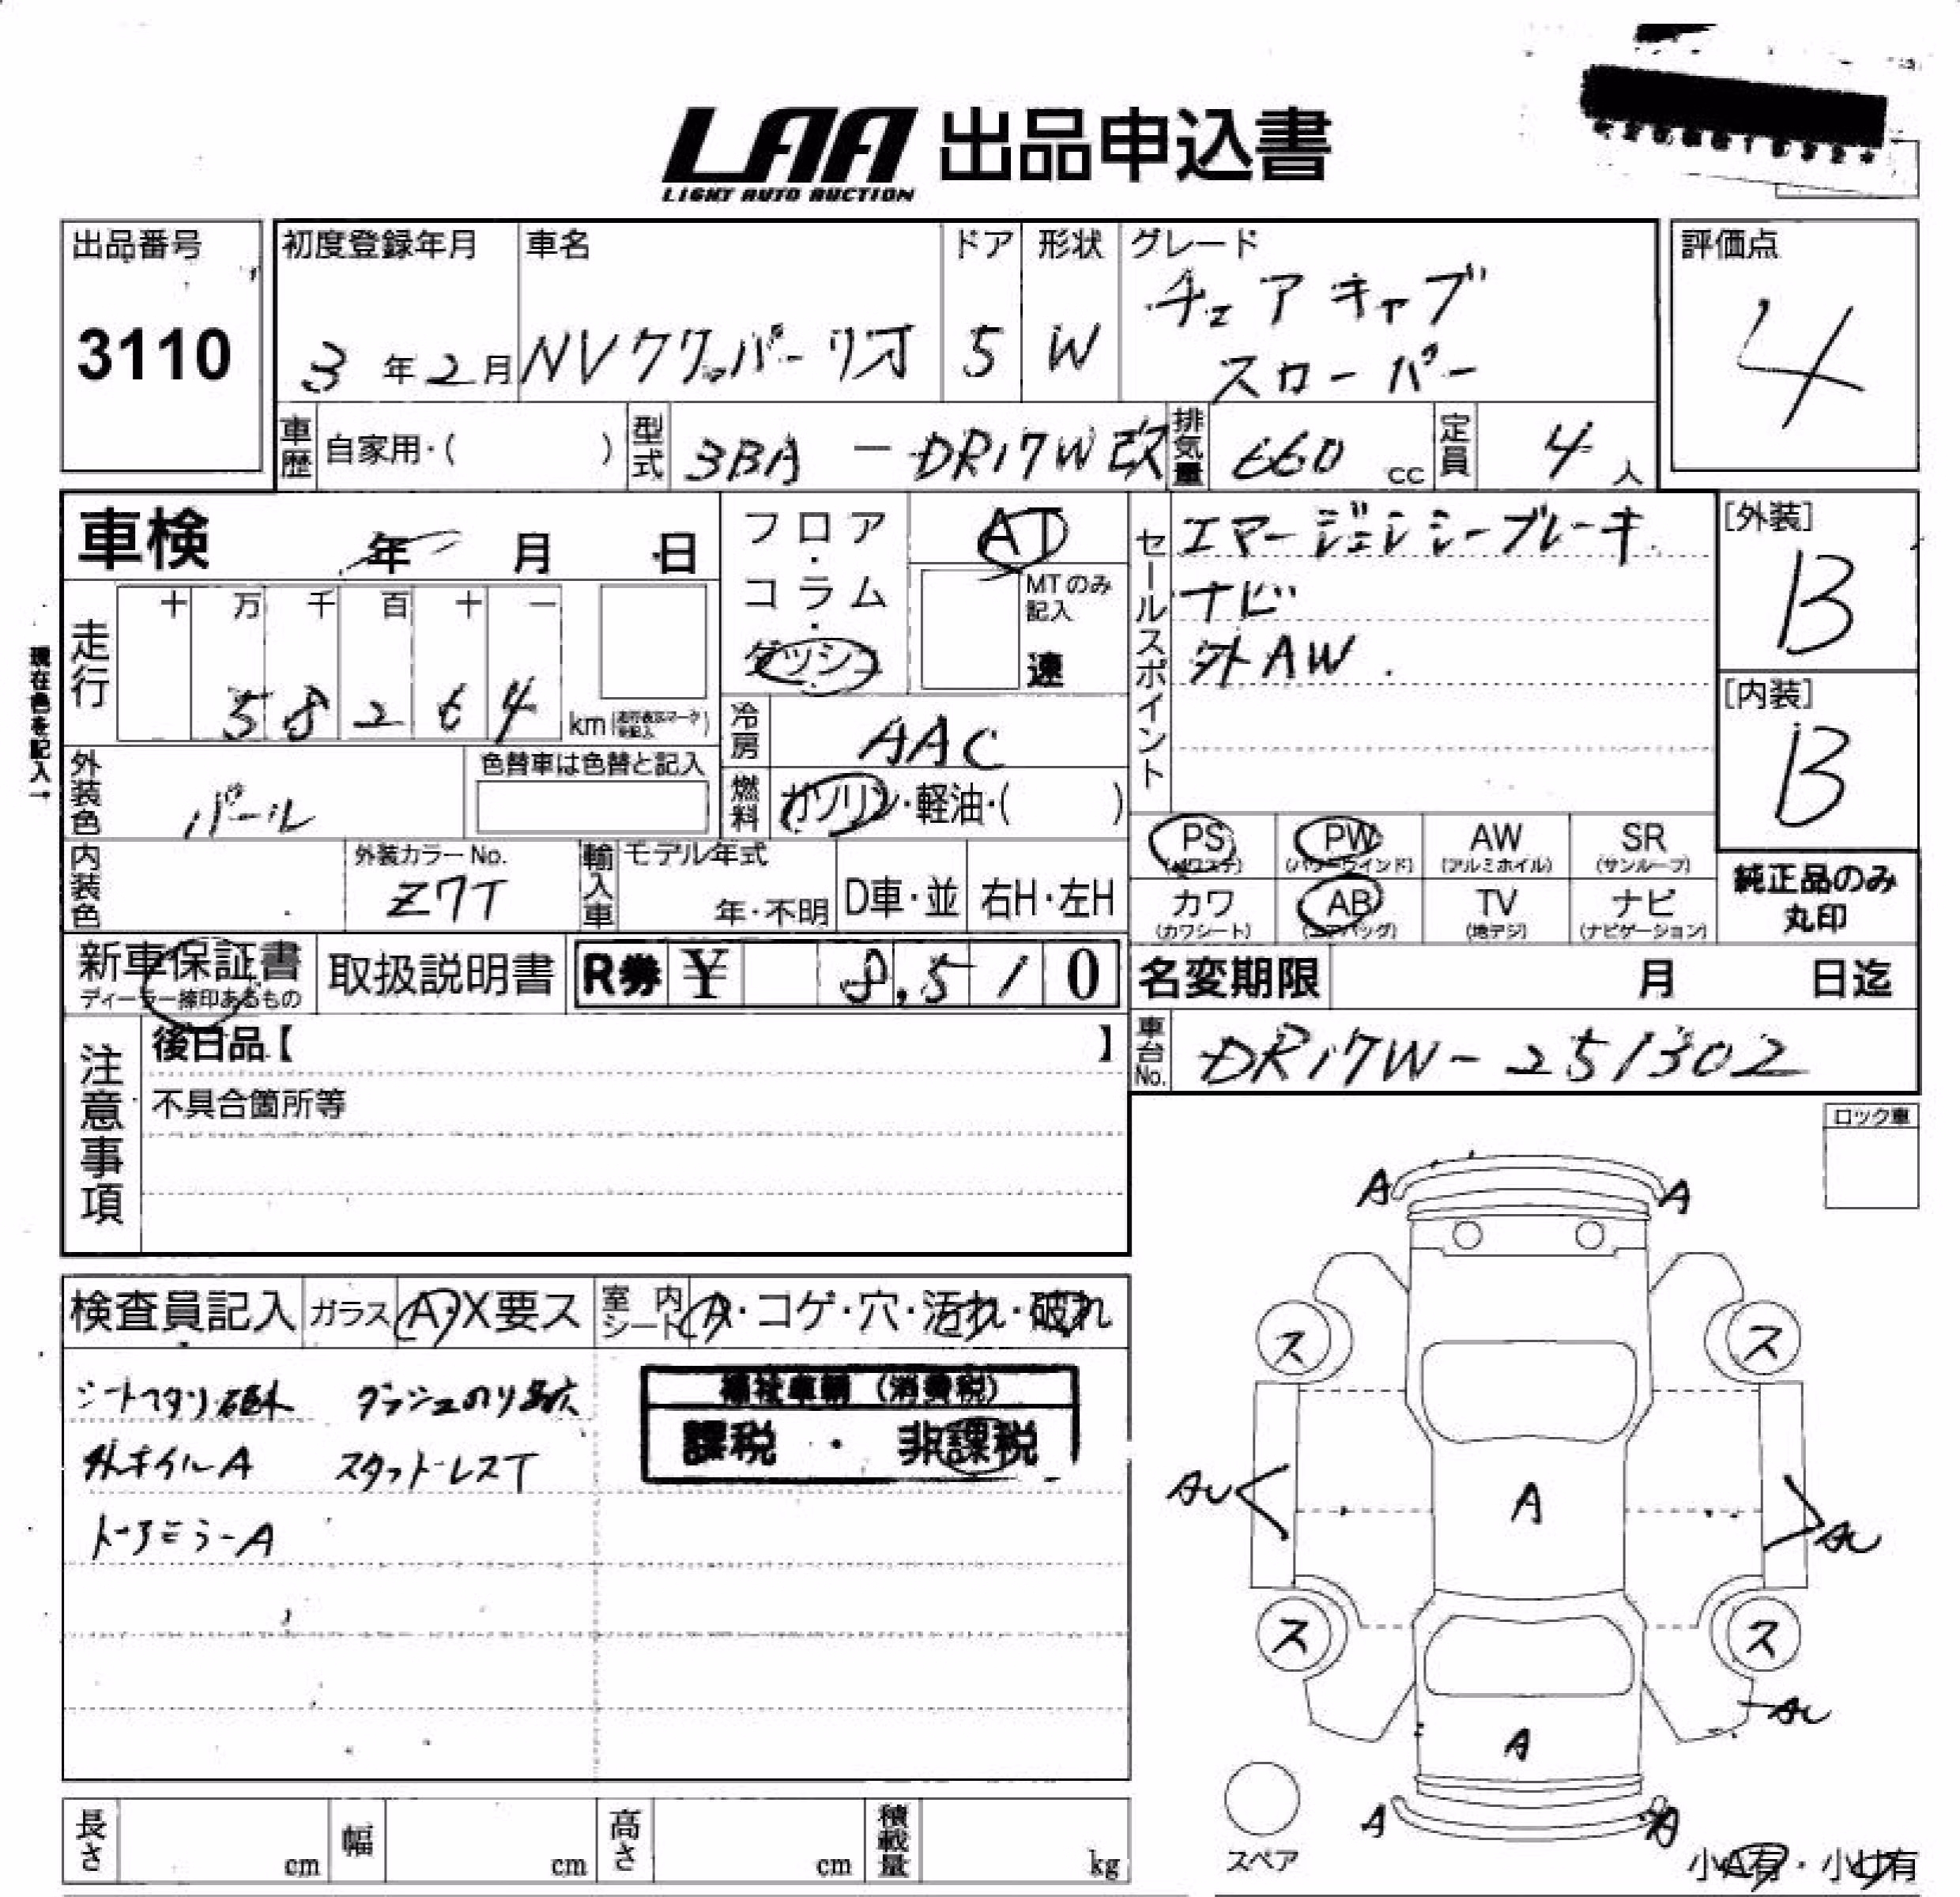 LAA 出品申込書
LIGHT AUTO AUCTION
出品番号
3110
初度登録年月
3 年 2 月
車名
NVクリッパーリオ
ドア
5
形状
W
グレード
チェアキャブ
スローパー
評価点
4
車歴
自家用・( )
型式
3BA - DR17W改
排気量
660 cc
定員
4 人
車検 年 月 日
走行
十 万 千 百 十 一
5 8 2 6 4 km
現在色を記入→
フロア・コラム・ダッシュ
AT
MTのみ記入
速
冷房
AAC
燃料
ガソリン・軽油・( )
セールスポイント
エマージェンシーブレーキ
ナビ
外AW
[外装]
B
[内装]
B
外装色
パール
色替車は色替と記入
内装色
外装カラーNo.
Z7T
輸入車
モデル年式
年・不明
D車・並
右H・左H
PS PW AW SR
(パワステ) (パワーウインド) (アルミホイル) (サンルーフ)
カワ AB TV ナビ
(カワシート) (エアバッグ) (地デジ) (ナビゲーション)
純正品のみ
丸印
新車保証書
ディーラー捺印あるもの
取扱説明書
R券 ¥ 8,510
名変期限 月 日迄
車台No.
DR17W-251302
注意事項
後日品【 】
不具合箇所等
ロック車
検査員記入
ガラス A・X要ス
室内シート A・コゲ・穴・汚れ・破れ
シートスタリ
外ホイルA スタットレスT
ドアミラーA
福祉車輌(消費税)
課税 ・ 非課税
A A
ス ス
AU A AU
ス ス
AU
A
A A
スペア
小A有・小U有
長さ cm
幅 cm
高さ cm
積載量 kg